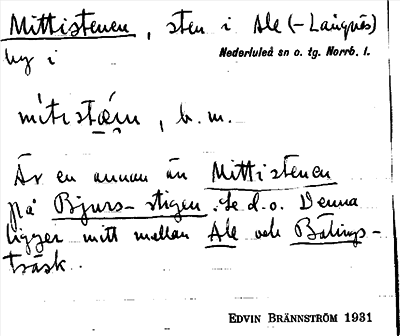 Mittistenen, sten i Ale (-Långnäs)
by i Nederluleå sn o. tg. Norrb. l.
mìtistǽ̣ṇ, b.m.
Är en annan än Mittistenen
på Bjurs-stigen. Se d.o. Denna
ligger mitt mellan Ale och Bälings-
träsk.
EDVIN BRÄNNSTRÖM 1931